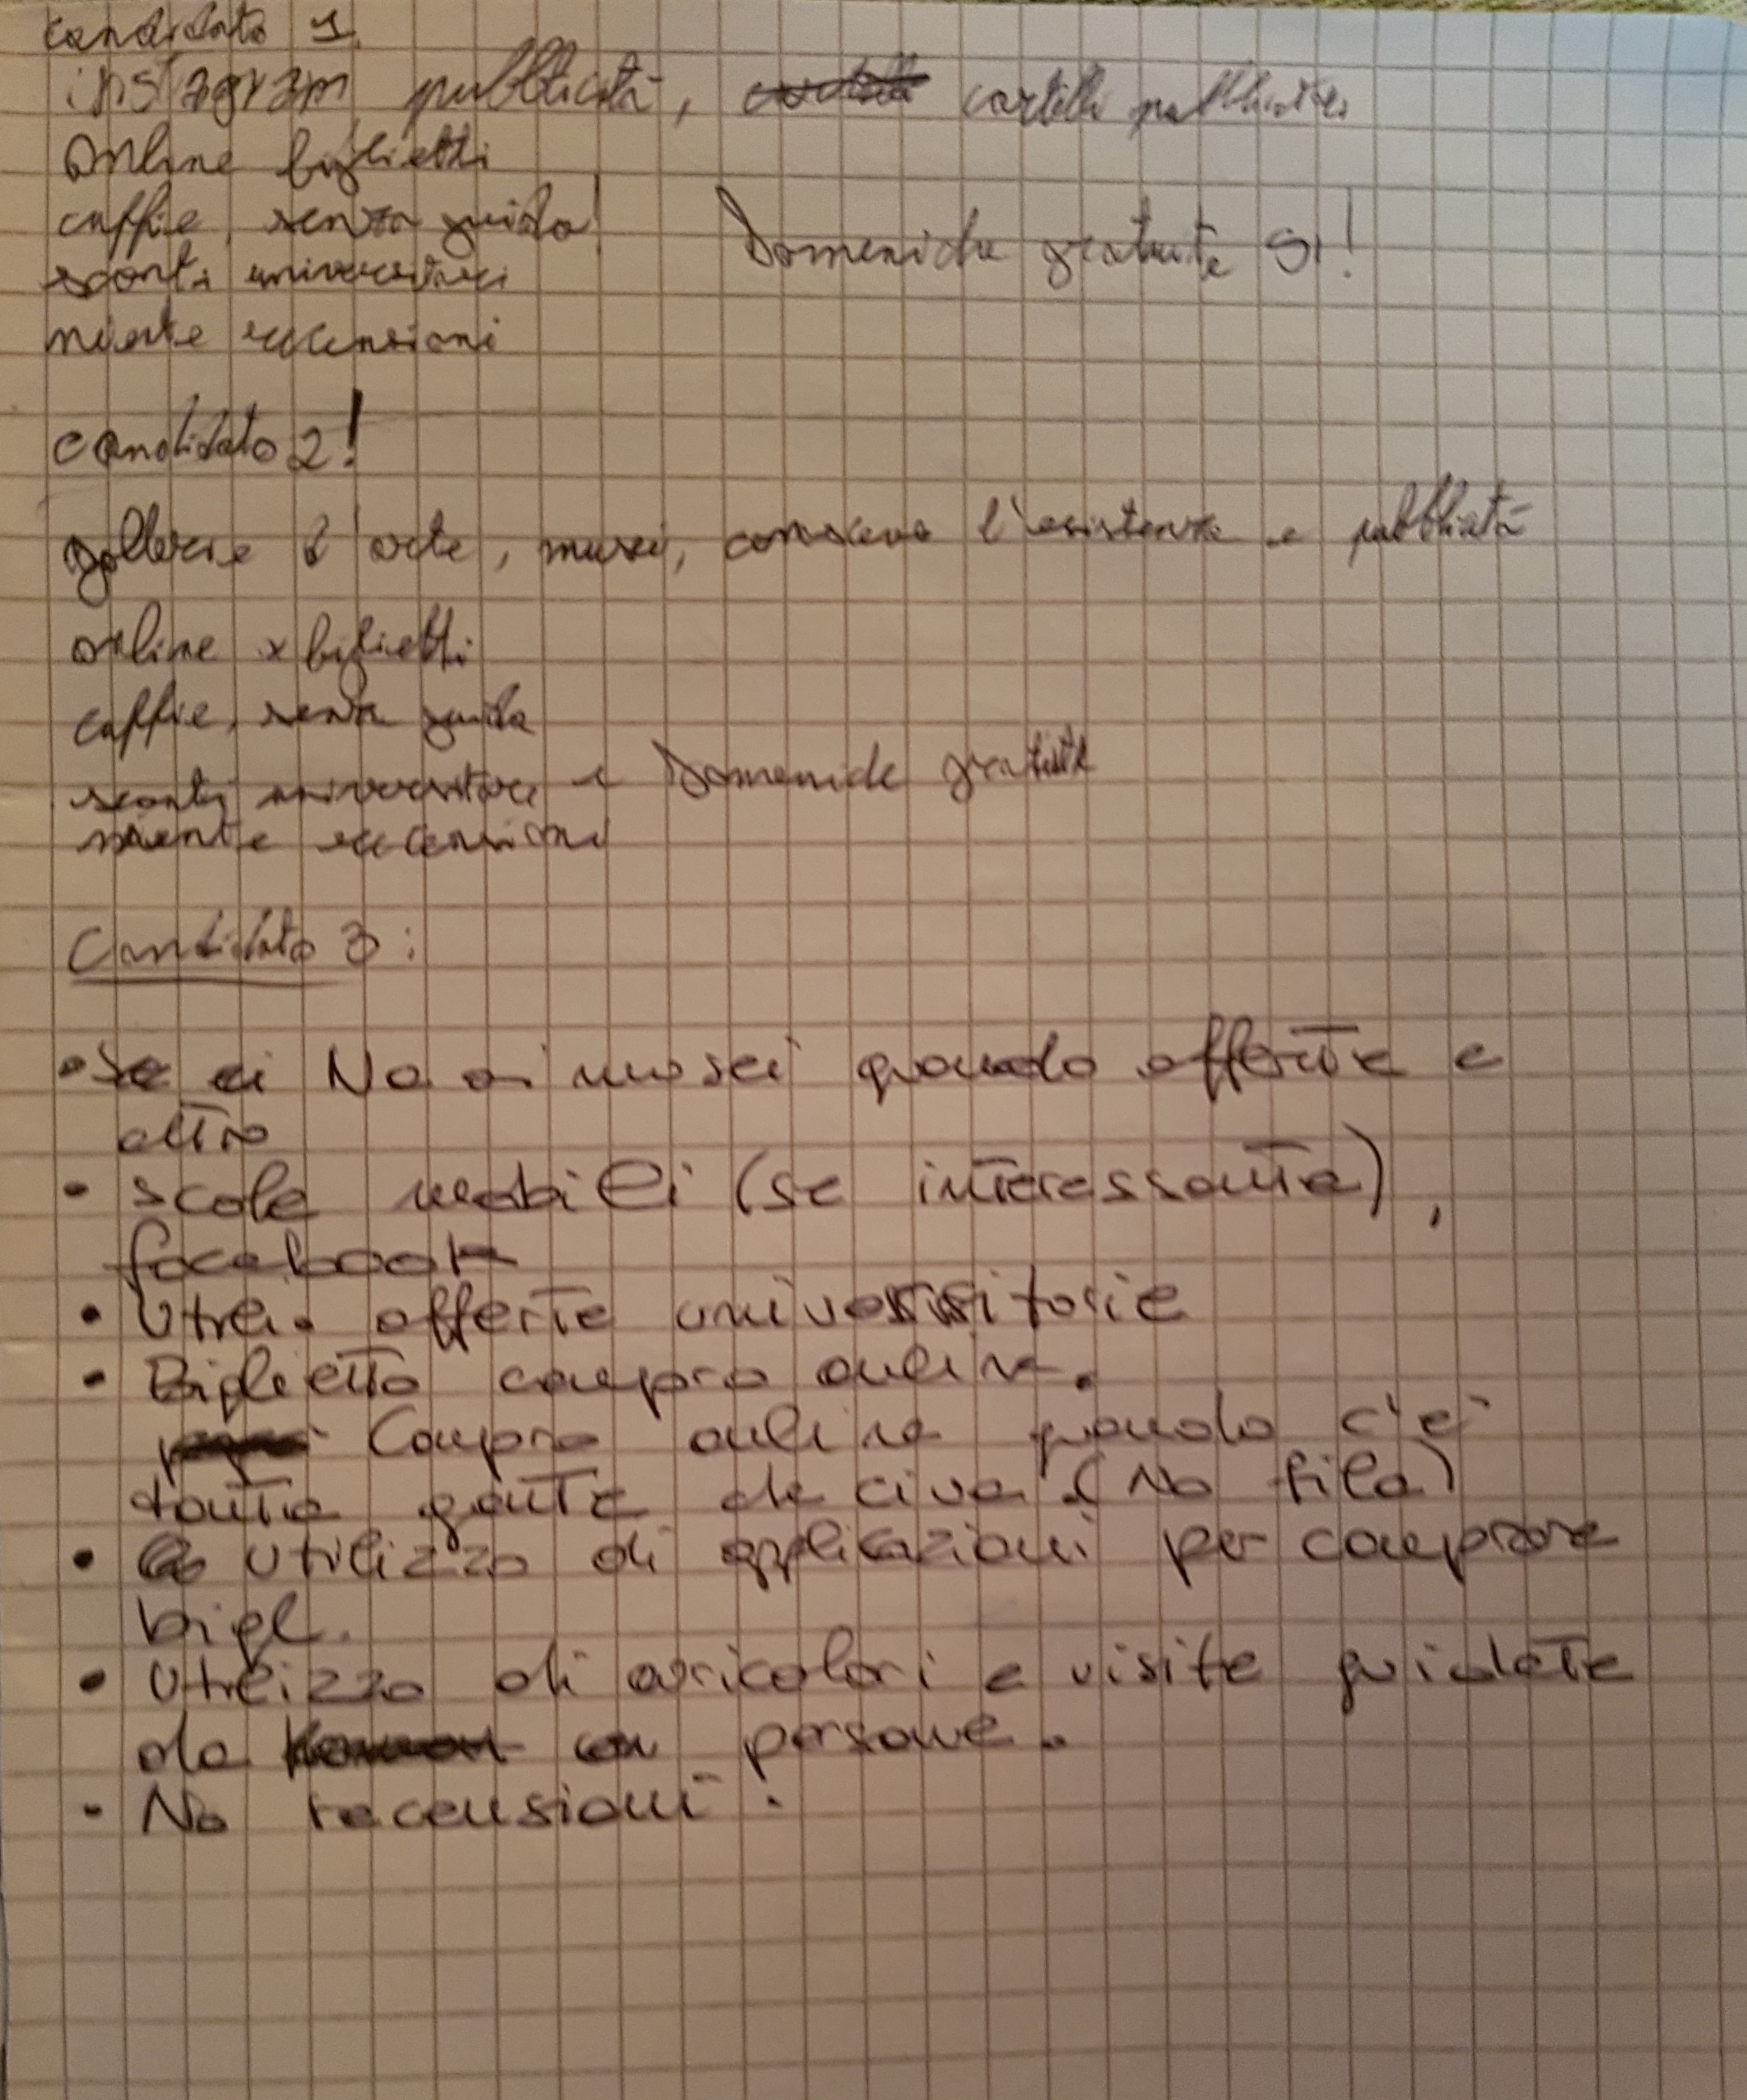 candidato 1
instagram pubblicità, cartelli pubblicitari
Online biglietti
cuffie, senza guida!
Domeniche gratuite SI!
sconti universitari
niente recensioni
candidato 2!
gallerie d'arte, musei, conosceva l'esistenza e pubblicità
online x biglietti
cuffie, senza guida
sconti universitari e Domeniche gratuite
niente recensioni
Candidato 3:
• Va ai musei quando offerte e
altro
• scale mobili (se interessante),
facebook
• offerte universitarie
• Biglietto compro online.
Compra online quando c'e'
tanta gente (No fila)
• Utilizzo di applicazioni per comprare
bigl.
• Utilizzo di auricolari e visite guidate
da persone.
• No recensioni.